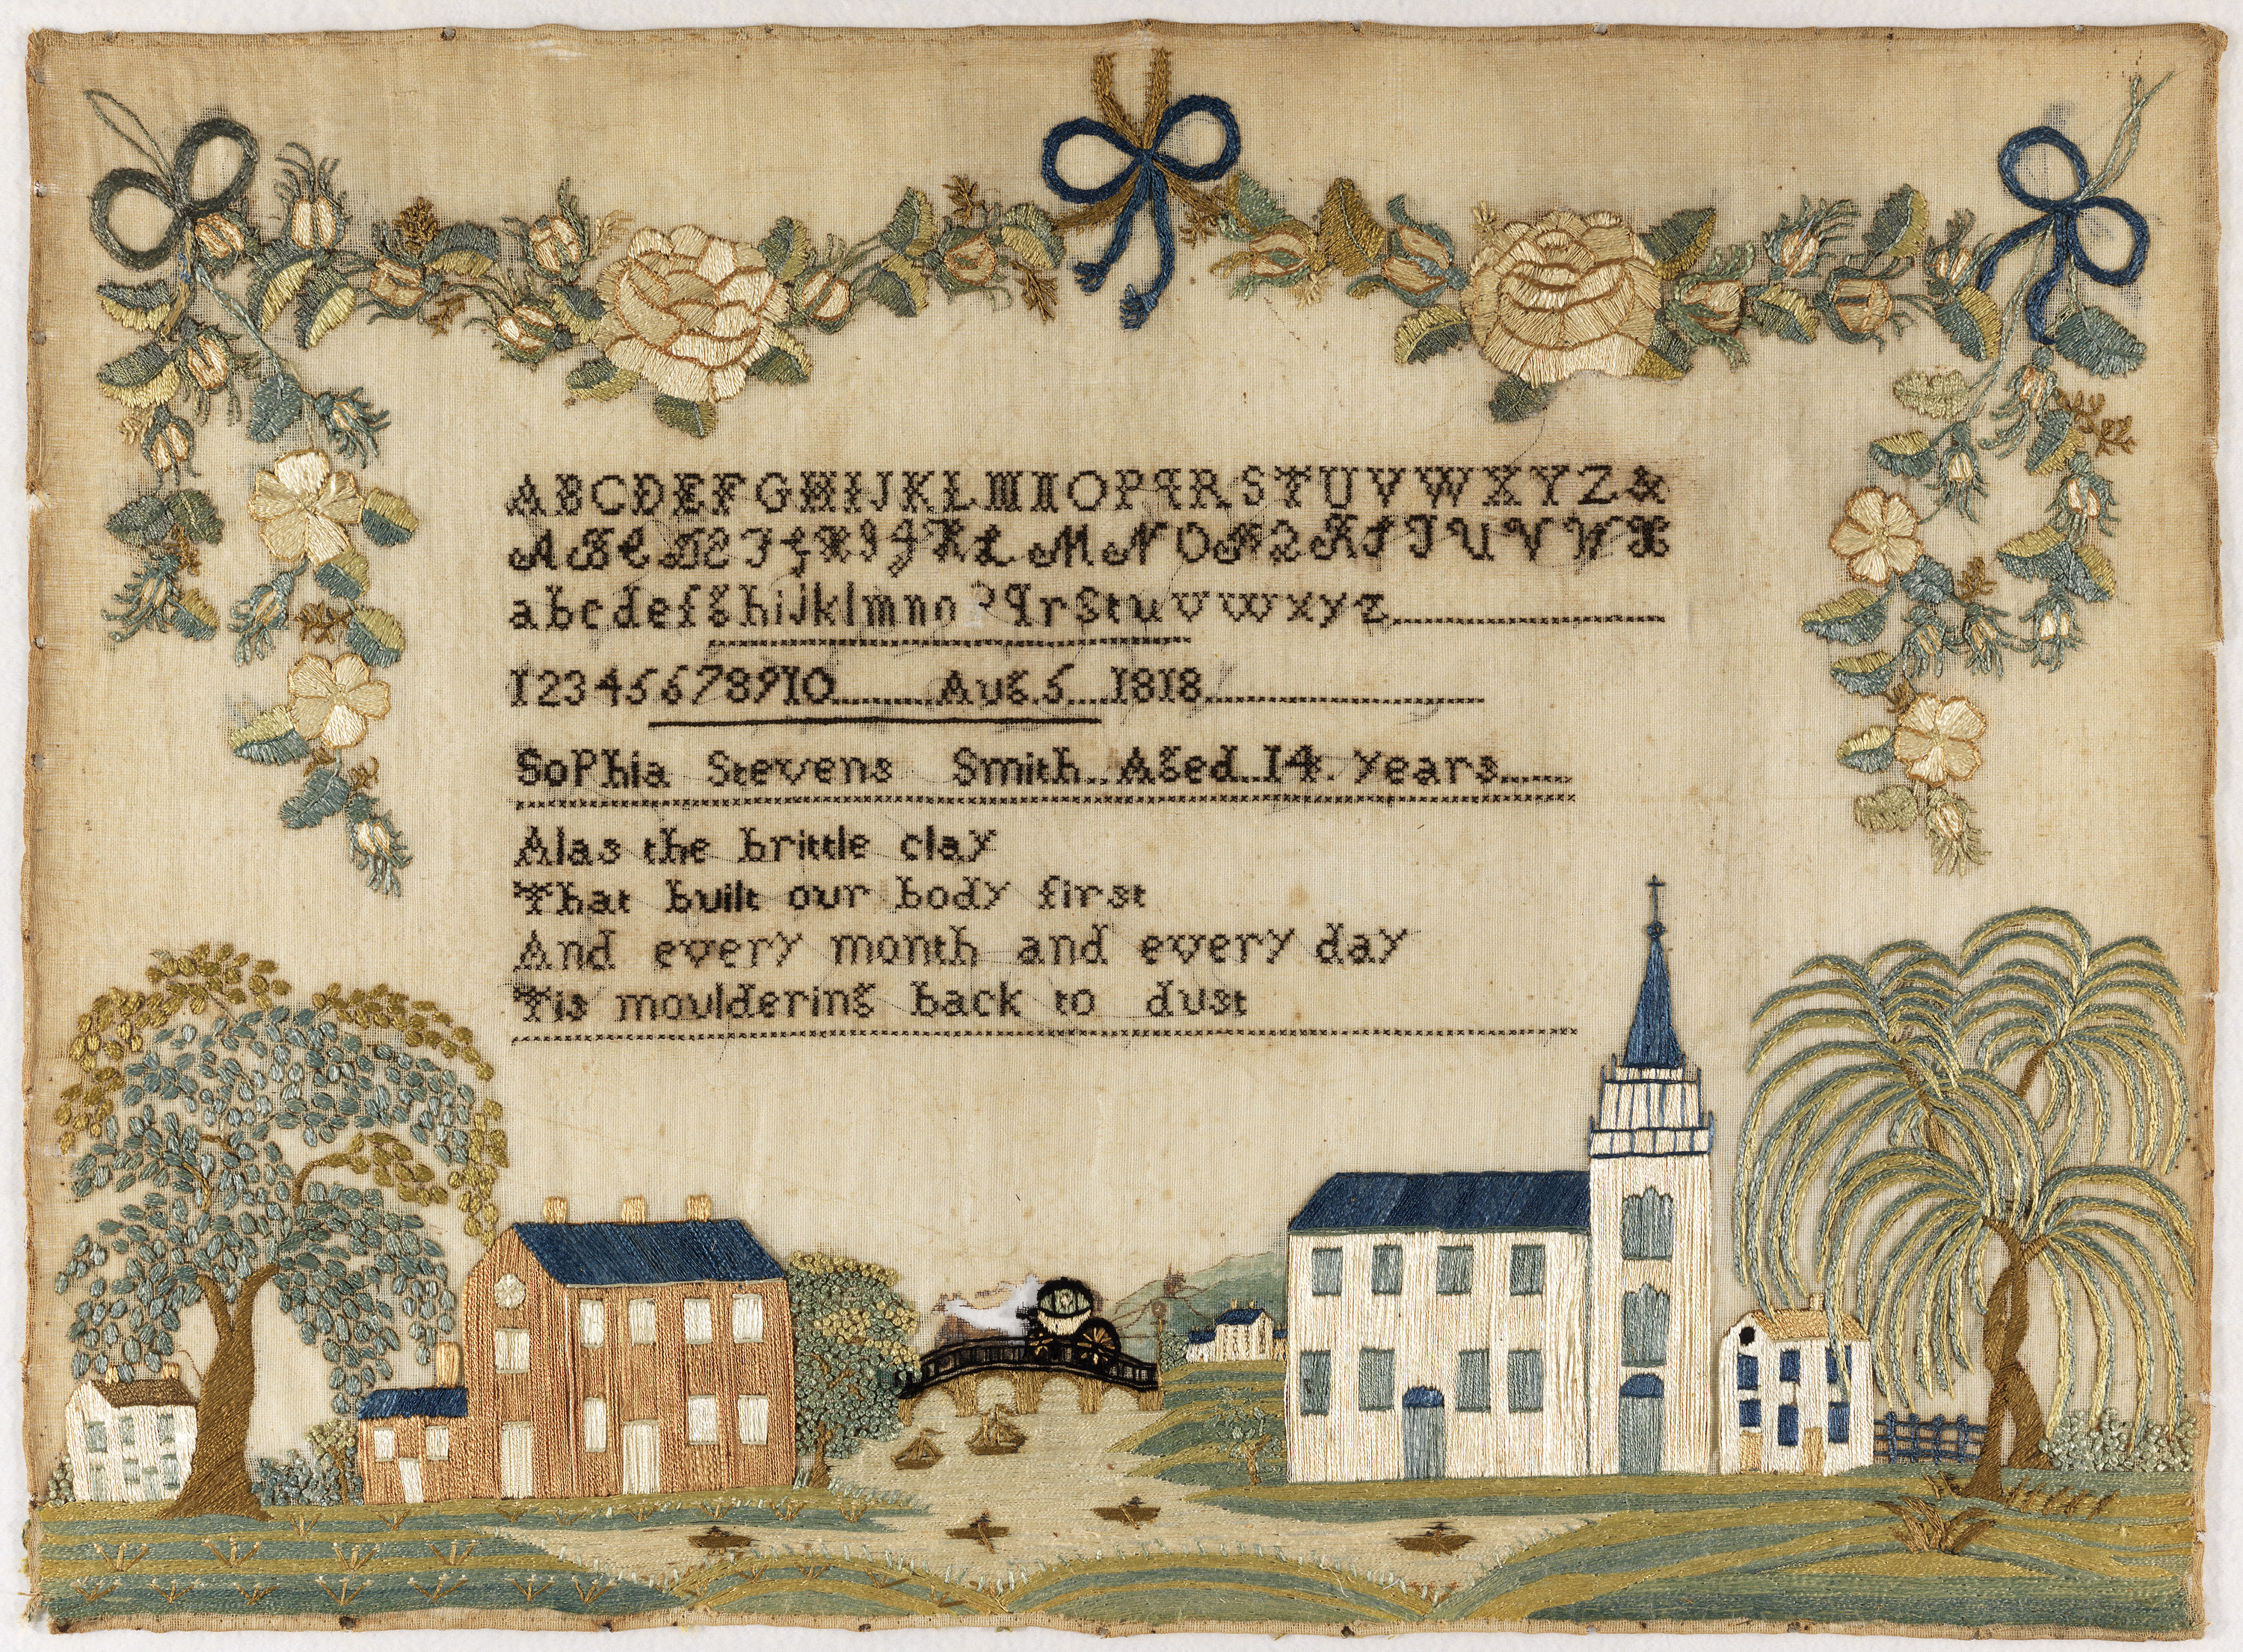 ABCDEFGHIJKLMNOPQRSTUVWXYZ&
ABCDEFGHIJKLMNOPQRSTUVWX
abcdefghijklmnopqrstuvwxyz
12345678910 Aug. 5 1818
SoPhia Stevens Smith.. Aged.. 14. years
Alas the brittle clay
That built our body first
And every month and every day
Tis mouldering back to dust